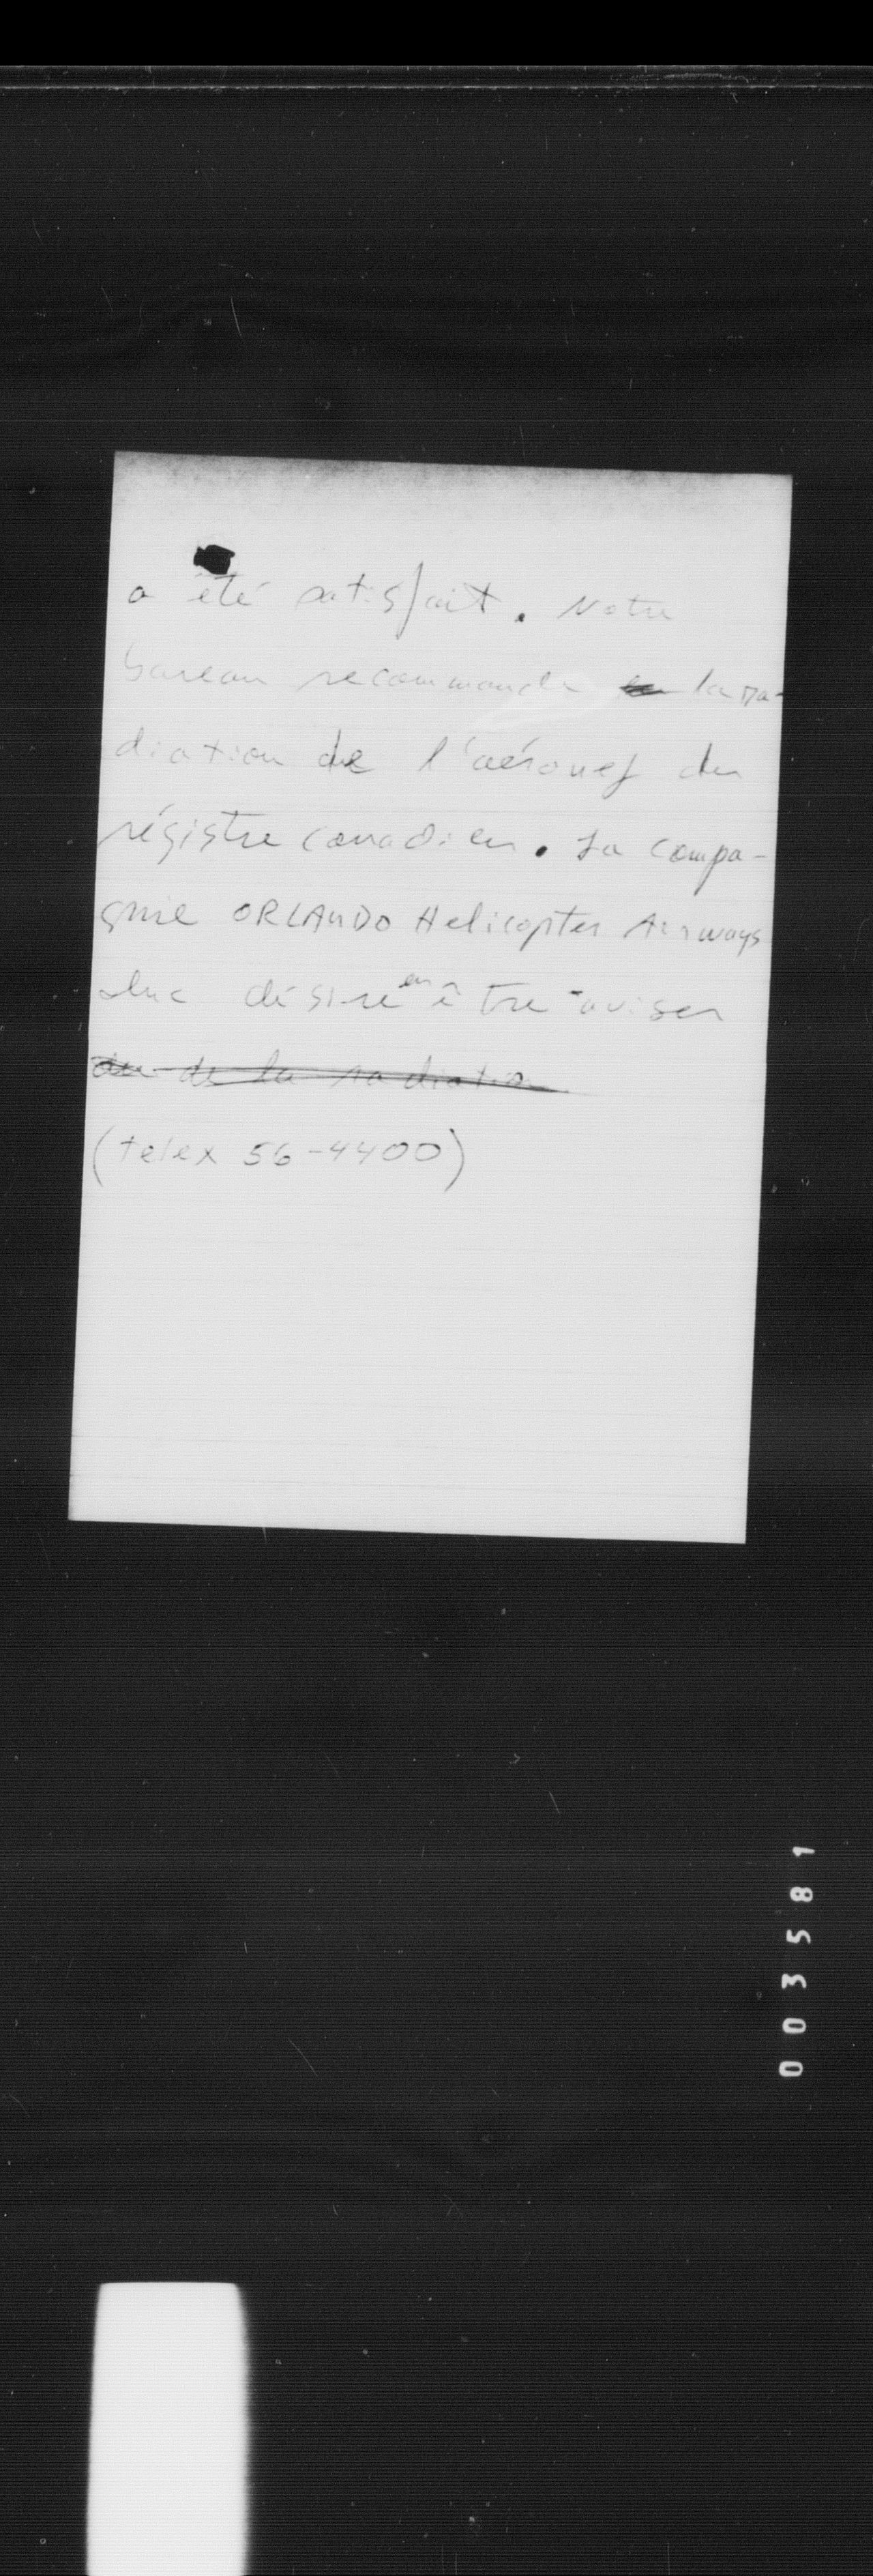 a été satisfait. Notre
bureau recommande la ra-
diation de l'aéronef du
régistre canadien. La compa-
gnie ORLANDO Helicopter Airways
Inc désire en être aviser
du de la radiation
(telex 56-4400)
003581